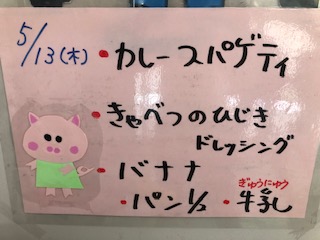 5/13(木) ・カレースパゲティ
・きゃべつのひじき
ドレッシング
・バナナ
ぎゅうにゅう
・パン1/2 ・牛乳